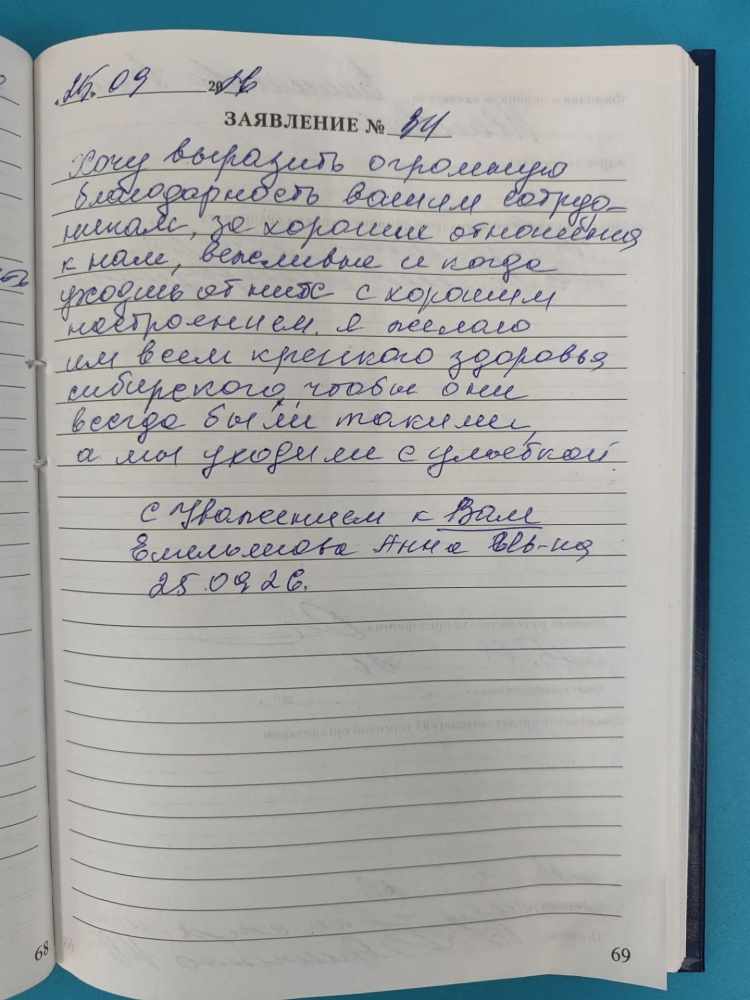 25. 09 20 26
ЗАЯВЛЕНИЕ № 34
Хочу выразить огромную
благодарность вашим сотруд-
никам, за хорошие отношения
к нам, вежливые и когда
уходишь от них с хорошим
настроением. я желаю
им всем крепкого здоровья
сибирского, чтобы они
всегда были такими,
а мы уходили с улыбкой
С Уважением к Вам
Емельянова Анна
25.09.26.
68
69